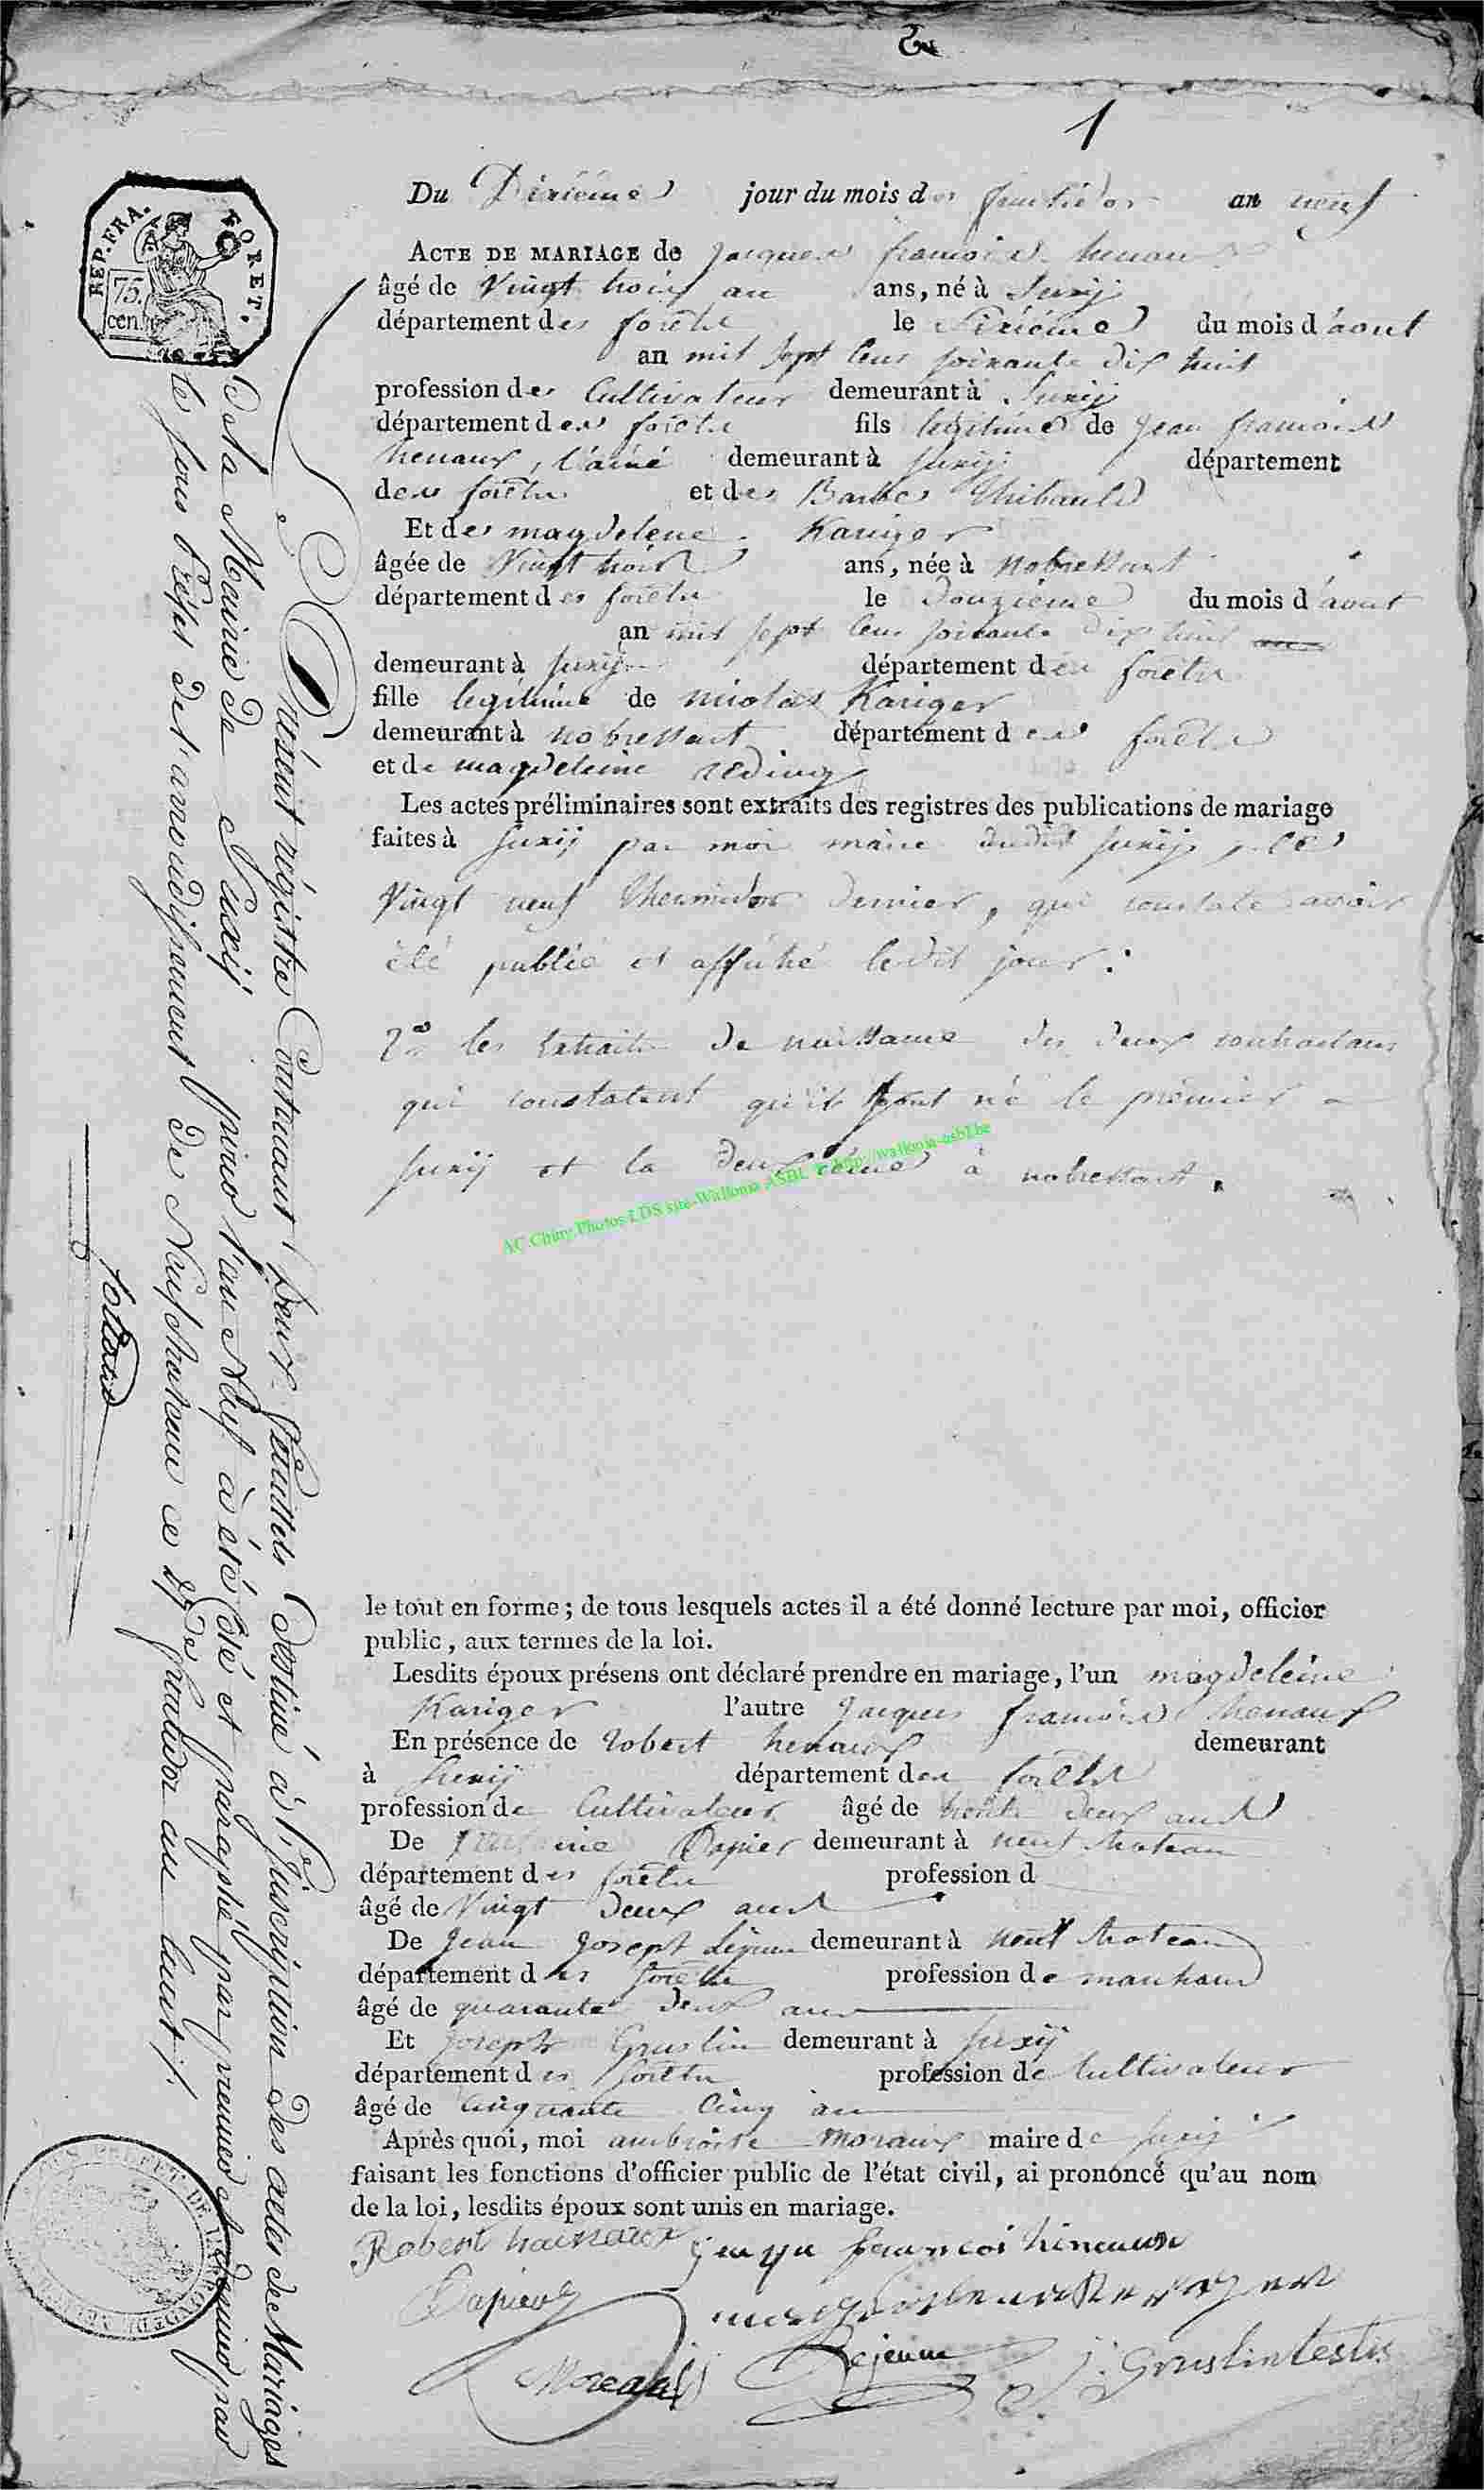 1
REP. FRA.
FORET.
75.
cen.
Du Dixieme jour du mois de fructidor an neuf
ACTE DE MARIAGE de jacques francois henaux
âgé de Vingt trois an ans, né à Suxÿ
département des forêts le Sixieme du mois d'aout
an mil sept cens soixante dix huit
profession de Cultivateur demeurant à Suxÿ
département des forêts fils legitime de Jean francois
henaux, l'ainé demeurant à Suxÿ département
des forêts et de Barbe Thibault
Et de magdelene Kariger
âgée de Vingt trois ans, née à nobressart
département des forêts le Douzieme du mois d'aout
an mil sept cens soixante dix huit
demeurant à Suxÿ département des forêts
fille legitime de nicolas Kariger
demeurant à nobressart département des forêts
et de magdeleine reding
Les actes préliminaires sont extraits des registres des publications de mariage
faites à Suxÿ par moi maire dudit Suxÿ, le
Vingt neuf thermidor dernier, qui constate avoir
été publié et affiché ledit jour :
2° les Extraits de naissance des deux contractans
qui constatent qu'ils sont né le premier a
Suxÿ et la deuxieme à nobressart.
AC Chiny Photos LDS site-Wallonia ASBL http://wallonia-asbl.be
le tout en forme ; de tous lesquels actes il a été donné lecture par moi, officier
public, aux termes de la loi.
Lesdits époux présens ont déclaré prendre en mariage, l'un magdeleine
Kariger l'autre Jacques francois henaux
En présence de robert henaux demeurant
à Suxÿ département des forêts
profession de Cultivateur âgé de trente deux ans
De Dapier demeurant à neufchateau
département des forêts profession d
âgé de Vingt deux ans
De Jean Joseph Lejeune demeurant à neufchateau
département des forêts profession de marchand
âgé de quarante deux ans
Et Joseph Gruslin demeurant à Suxÿ
département des forêts profession de Cultivateur
âgé de cinquante cinq an
Après quoi, moi ambroise moraux maire de Suxÿ
faisant les fonctions d'officier public de l'état civil, ai prononcé qu'au nom
de la loi, lesdits époux sont unis en mariage.
Robert hainaux jacque francoi hinaux
Dapier
Lejeune
J: Gruslin testis
Présent régistre Contenant Deux feuillets Destiné à l'inscription des actes de Mariages
de la Mairie de Suxÿ pour l'an Neuf à été Coté et paraphé par premier et dernier par
le sous Préfet de l'arrondissement de Neufchateau ce fructidor an huit